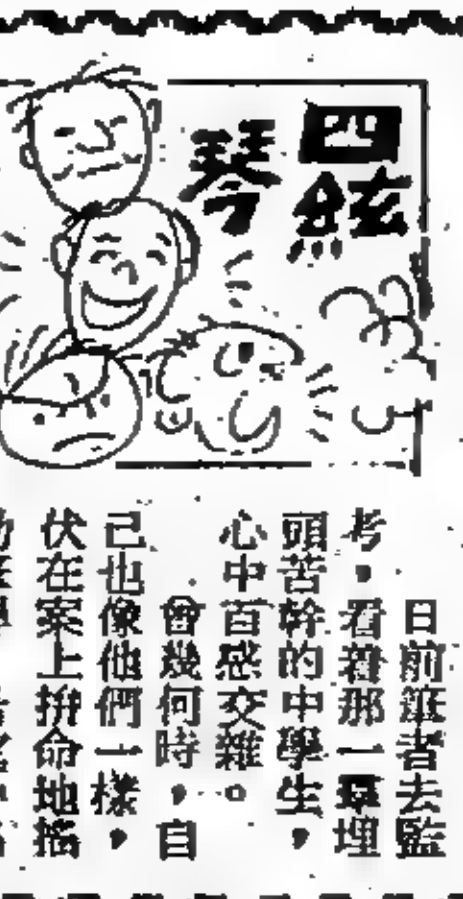 四絃
琴
日前筆者去監
考,看着那一羣埋
頭苦幹的中學生,
心中百感交雜。
曾幾何時,自
己也像他們一樣,
伏在案上拚命地搖